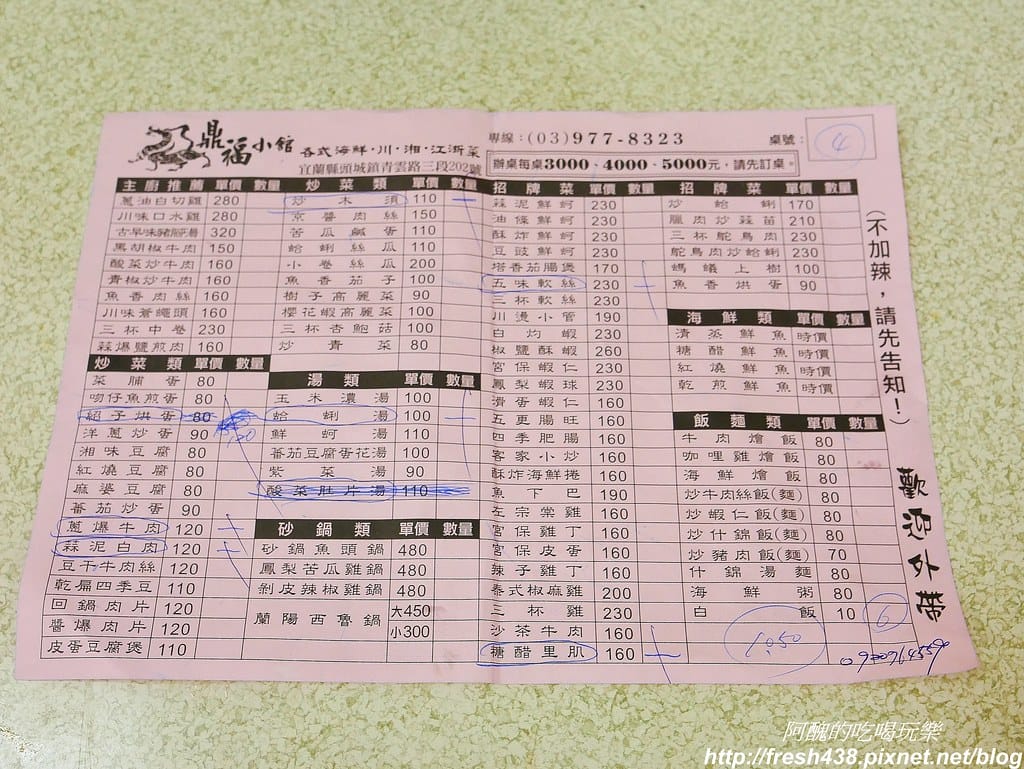 鼎福小館 各式海鮮·川·湘·江浙菜
宜蘭縣頭城鎮青雲路三段202號
專線:(03)977-8323
桌號: 4
辦桌每桌3000、4000、5000元,請先訂桌。
主廚推薦 單價 數量
蔥油白切雞 280
川味口水雞 280
古早味豬腳湯 320
黑胡椒牛肉 150
酸菜炒牛肉 160
青椒炒牛肉 160
魚香肉絲 160
川味蒼蠅頭 160
三杯中卷 230
蒜爆鹽煎肉 160
炒菜類 單價 數量
菜脯蛋 80
吻仔魚煎蛋 80
紹子烘蛋 80
洋蔥炒蛋 90
湘味豆腐 80
紅燒豆腐 80
麻婆豆腐 80
番茄炒蛋 90
蔥爆牛肉 120 一
蒜泥白肉 120 一
豆干牛肉絲 120
乾扁四季豆 110
回鍋肉片 120
醬爆肉片 120
皮蛋豆腐煲 110
炒菜類 單價 數量
炒木須 110 一
京醬肉絲 150
苦瓜鹹蛋 110
蛤蜊絲瓜 110
小卷絲瓜 200
魚香茄子 100
樹子高麗菜 90
櫻花蝦高麗菜 100
三杯杏鮑菇 100
炒青菜 80
湯類 單價 數量
玉米濃湯 100
蛤蜊湯 100 一
鮮蚵湯 110
番茄豆腐蛋花湯 100
紫菜湯 90
酸菜肚片湯 110
砂鍋類 單價 數量
砂鍋魚頭鍋 480
鳳梨苦瓜雞鍋 480
剝皮辣椒雞鍋 480
蘭陽西魯鍋 大450
小300
招牌菜 單價 數量
蒜泥鮮蚵 230
油條鮮蚵 230
酥炸鮮蚵 230
豆豉鮮蚵 230
塔香茄腸煲 170
五味軟絲 230 一
三杯軟絲 230
川燙小管 190
白灼蝦 230
椒鹽酥蝦 260
宮保蝦仁 230
鳳梨蝦球 230
滑蛋蝦仁 230
五更腸旺 160
四季肥腸 160
客家小炒 160
酥炸海鮮捲 160
魚下巴 190
左宗棠雞 160
宮保雞丁 160
宮保皮蛋 160
辣子雞丁 160
泰式椒麻雞 200
三杯雞 230
沙茶牛肉 160
糖醋里肌 160 一
招牌菜 單價 數量
炒蛤蜊 170
臘肉炒蒜苗 210
三杯鴕鳥肉 230
鴕鳥肉炒蛤蜊 230
螞蟻上樹 100
魚香烘蛋 90
海鮮類 單價 數量
清蒸鮮魚 時價
糖醋鮮魚 時價
紅燒鮮魚 時價
乾煎鮮魚 時價
飯麵類 單價 數量
牛肉燴飯 80
咖哩雞燴飯 80
海鮮燴飯 80
炒牛肉絲飯(麵) 80
炒蝦仁飯(麵) 80
炒什錦飯(麵) 80
炒豬肉飯(麵) 70
什錦湯麵 80
海鮮粥 80
白飯 10 6
1050
(不加辣,請先告知!)
歡迎外帶
阿醜的吃喝玩樂
http://fresh438.pixnet.net/blog